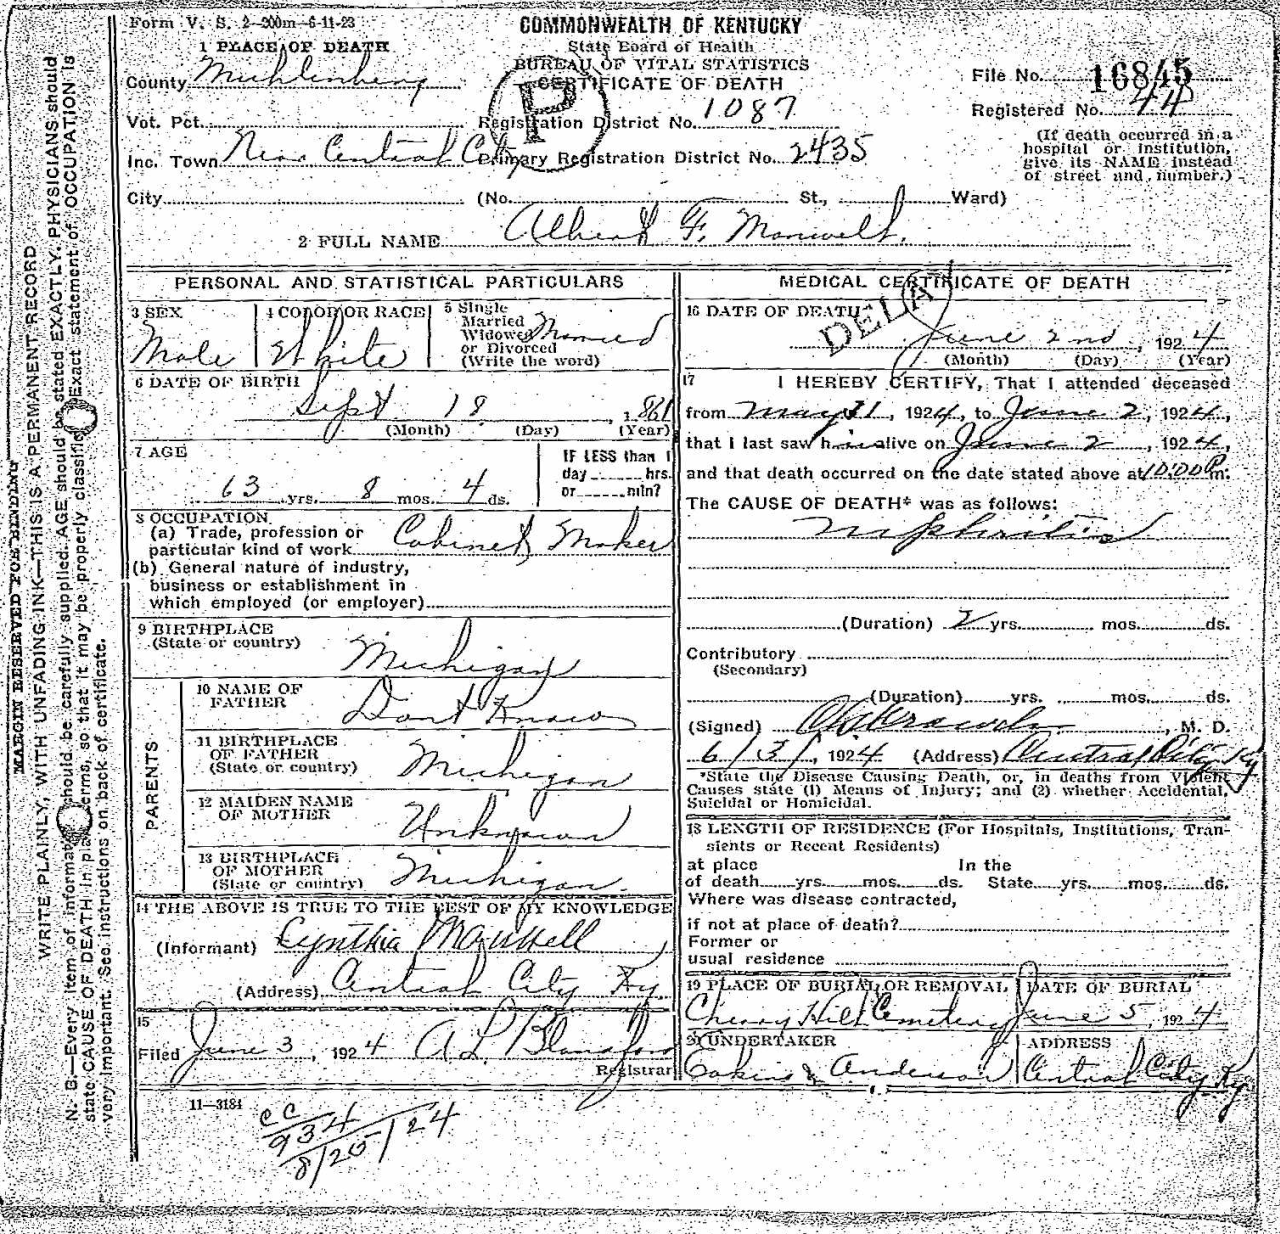 Form V. S. 2-300m-6-11-23
COMMONWEALTH OF KENTUCKY
State Board of Health
BUREAU OF VITAL STATISTICS
CERTIFICATE OF DEATH
1 PLACE OF DEATH
County Muhlenberg
File No. 16845
Vot. Pct. Registration District No. 1087
Registered No. 44
P
Inc. Town Near Central City Primary Registration District No. 2435
(If death occurred in a
hospital or institution,
give its NAME instead
of street and number.)
City (No. St., Ward)
2 FULL NAME Albert F. Maxwell.
PERSONAL AND STATISTICAL PARTICULARS
3 SEX
Male
4 COLOR OR RACE
White
5 Single
Married
Widowed
or Divorced
(Write the word)
Married
6 DATE OF BIRTH
Sept 18, 1861
(Month) (Day) (Year)
7 AGE
63 yrs. 8 mos. 4 ds.
IF LESS than 1
day hrs.
or min?
8 OCCUPATION
(a) Trade, profession or
particular kind of work Cabinet Maker
(b) General nature of industry,
business or establishment in
which employed (or employer)
9 BIRTHPLACE
(State or country)
Michigan
PARENTS
10 NAME OF
FATHER
Dont Know
11 BIRTHPLACE
OF FATHER
(State or country)
Michigan
12 MAIDEN NAME
OF MOTHER
Unknown
13 BIRTHPLACE
OF MOTHER
(State or country)
Michigan.
14 THE ABOVE IS TRUE TO THE BEST OF MY KNOWLEDGE
(Informant) Cynthia Maxwell
(Address) Central City Ky
15
Filed June 3, 1924
Registrar
11-3184
cc
934
8/25/24
MEDICAL CERTIFICATE OF DEATH
DELAY
16 DATE OF DEATH
June 2nd, 1924
(Month) (Day) (Year)
17 I HEREBY CERTIFY, That I attended deceased
from May 31, 1924, to June 2, 1924,
that I last saw him alive on June 2, 1924,
and that death occurred on the date stated above at 10:00 P m.
The CAUSE OF DEATH* was as follows:
Nephritis
(Duration) 2 yrs. mos. ds.
Contributory
(Secondary)
(Duration) yrs. mos. ds.
(Signed) , M. D.
6/3/, 1924 (Address) Central City Ky
*State the Disease Causing Death, or, in deaths from Violent
Causes state (1) Means of Injury; and (2) whether Accidental,
Suicidal or Homicidal.
18 LENGTH OF RESIDENCE (For Hospitals, Institutions, Tran-
sients or Recent Residents)
at place In the
of death yrs. mos. ds. State yrs. mos. ds.
Where was disease contracted,
if not at place of death?
Former or
usual residence
19 PLACE OF BURIAL OR REMOVAL
Cherry Hill Cemetery
DATE OF BURIAL
June 5, 1924
20 UNDERTAKER
Eakins & Anderson
ADDRESS
Central City Ky.
MARGIN RESERVED FOR BINDING
WRITE PLAINLY, WITH UNFADING INK—THIS IS A PERMANENT RECORD
N. B.—Every item of information should be carefully supplied. AGE should be stated EXACTLY. PHYSICIANS should
state CAUSE OF DEATH in plain terms, so that it may be properly classified. Exact statement of OCCUPATION is
very important. See instructions on back of certificate.